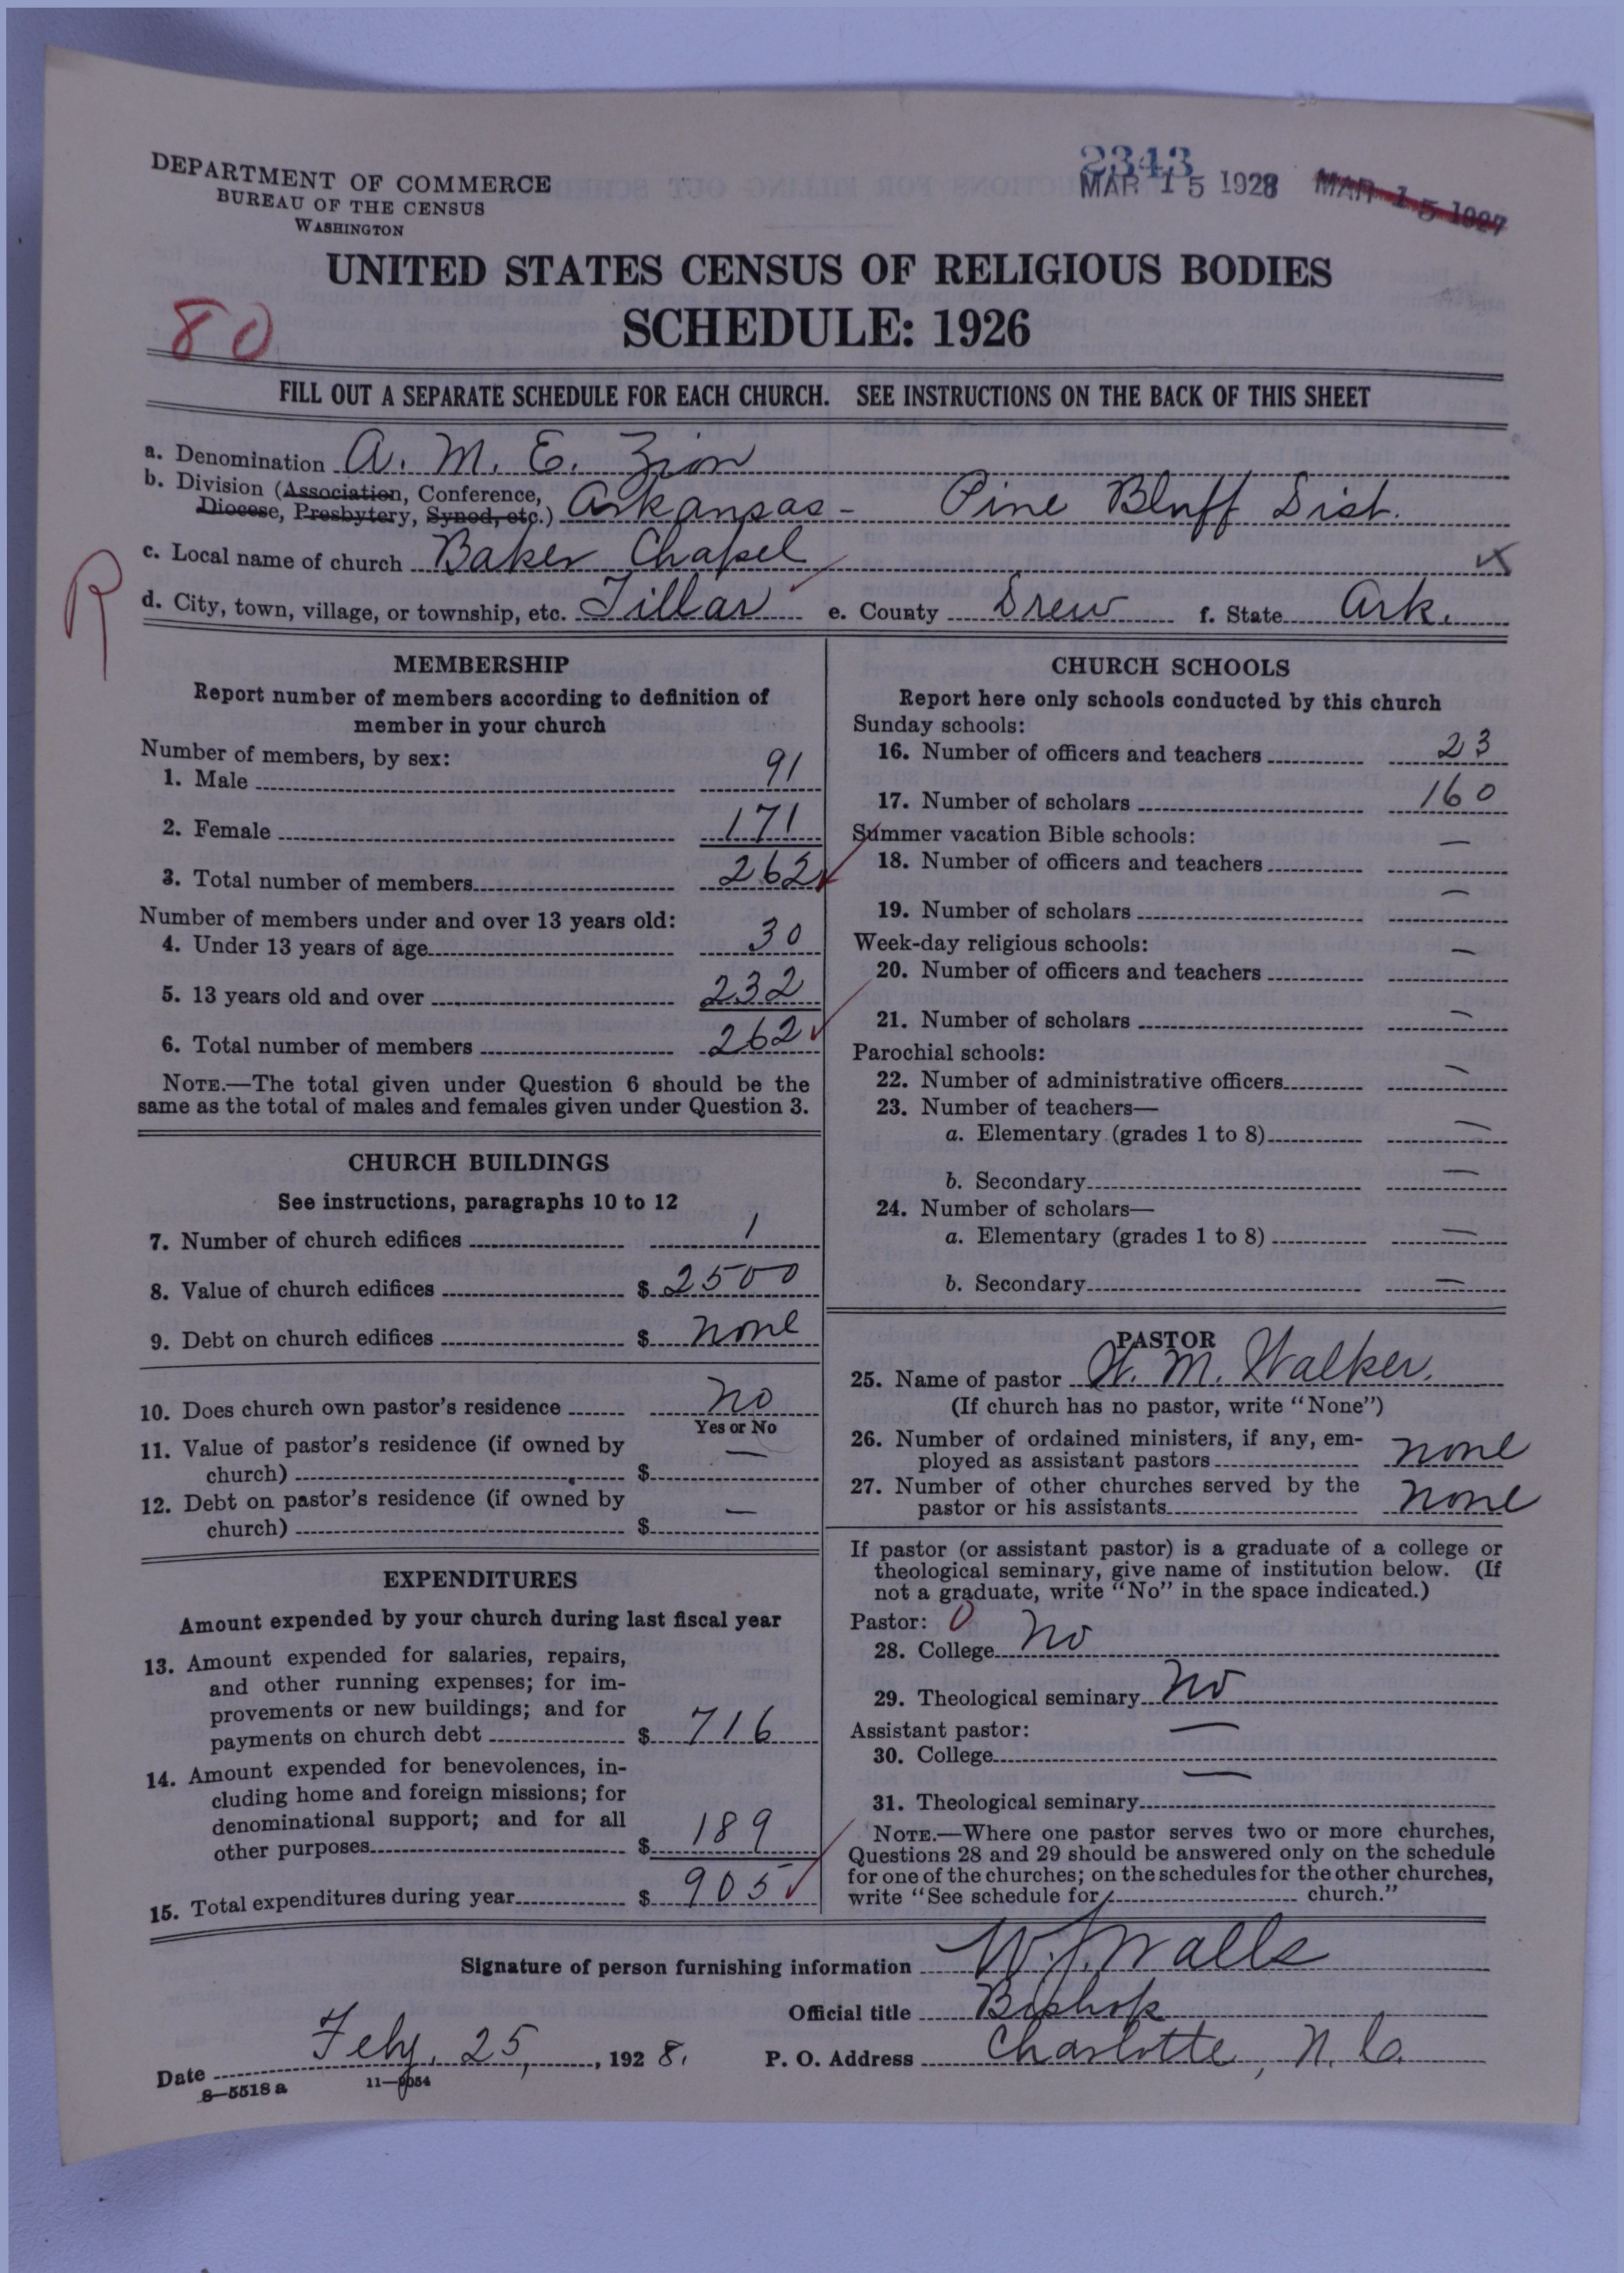 DEPARTMENT OF COMMERCE
BUREAU OF THE CENSUS
WASHINGTON
2343
MAR 15 1928 MAR 15 1927
UNITED STATES CENSUS OF RELIGIOUS BODIES
SCHEDULE: 1926
80
FILL OUT A SEPARATE SCHEDULE FOR EACH CHURCH. SEE INSTRUCTIONS ON THE BACK OF THIS SHEET
a. Denomination A. M. E. Zion
b. Division (Association, Conference, Diocese, Presbytery, Synod, etc.) Arkansas - Pine Bluff Dist.
c. Local name of church Baker Chapel
R
d. City, town, village, or township, etc. Tillar e. County Drew f. State Ark.
MEMBERSHIP
Report number of members according to definition of
member in your church
Number of members, by sex:
1. Male 91
2. Female 171
3. Total number of members 262
Number of members under and over 13 years old:
4. Under 13 years of age 30
5. 13 years old and over 232
6. Total number of members 262
NOTE.—The total given under Question 6 should be the
same as the total of males and females given under Question 3.
CHURCH BUILDINGS
See instructions, paragraphs 10 to 12
7. Number of church edifices 1
8. Value of church edifices $ 2500
9. Debt on church edifices $ none
10. Does church own pastor's residence no
Yes or No
11. Value of pastor's residence (if owned by
church) $ —
12. Debt on pastor's residence (if owned by
church) $ —
EXPENDITURES
Amount expended by your church during last fiscal year
13. Amount expended for salaries, repairs,
and other running expenses; for im-
provements or new buildings; and for
payments on church debt $ 716
14. Amount expended for benevolences, in-
cluding home and foreign missions; for
denominational support; and for all
other purposes $ 189
15. Total expenditures during year $ 905
CHURCH SCHOOLS
Report here only schools conducted by this church
Sunday schools:
16. Number of officers and teachers 23
17. Number of scholars 160
Summer vacation Bible schools:
18. Number of officers and teachers —
19. Number of scholars —
Week-day religious schools:
20. Number of officers and teachers —
21. Number of scholars —
Parochial schools:
22. Number of administrative officers —
23. Number of teachers—
a. Elementary (grades 1 to 8) —
b. Secondary —
24. Number of scholars—
a. Elementary (grades 1 to 8) —
b. Secondary —
PASTOR
25. Name of pastor W. M. Walker.
(If church has no pastor, write "None")
26. Number of ordained ministers, if any, em-
ployed as assistant pastors none
27. Number of other churches served by the
pastor or his assistants none
If pastor (or assistant pastor) is a graduate of a college or
theological seminary, give name of institution below. (If
not a graduate, write "No" in the space indicated.)
Pastor: 0
28. College no
29. Theological seminary no
Assistant pastor:
30. College —
31. Theological seminary —
NOTE.—Where one pastor serves two or more churches,
Questions 28 and 29 should be answered only on the schedule
for one of the churches; on the schedules for the other churches,
write "See schedule for church."
Signature of person furnishing information W. J. Walls
Official title Bishop
Date Feby. 25, 1928. P. O. Address Charlotte, N. C.
8—5518 a 11—9054